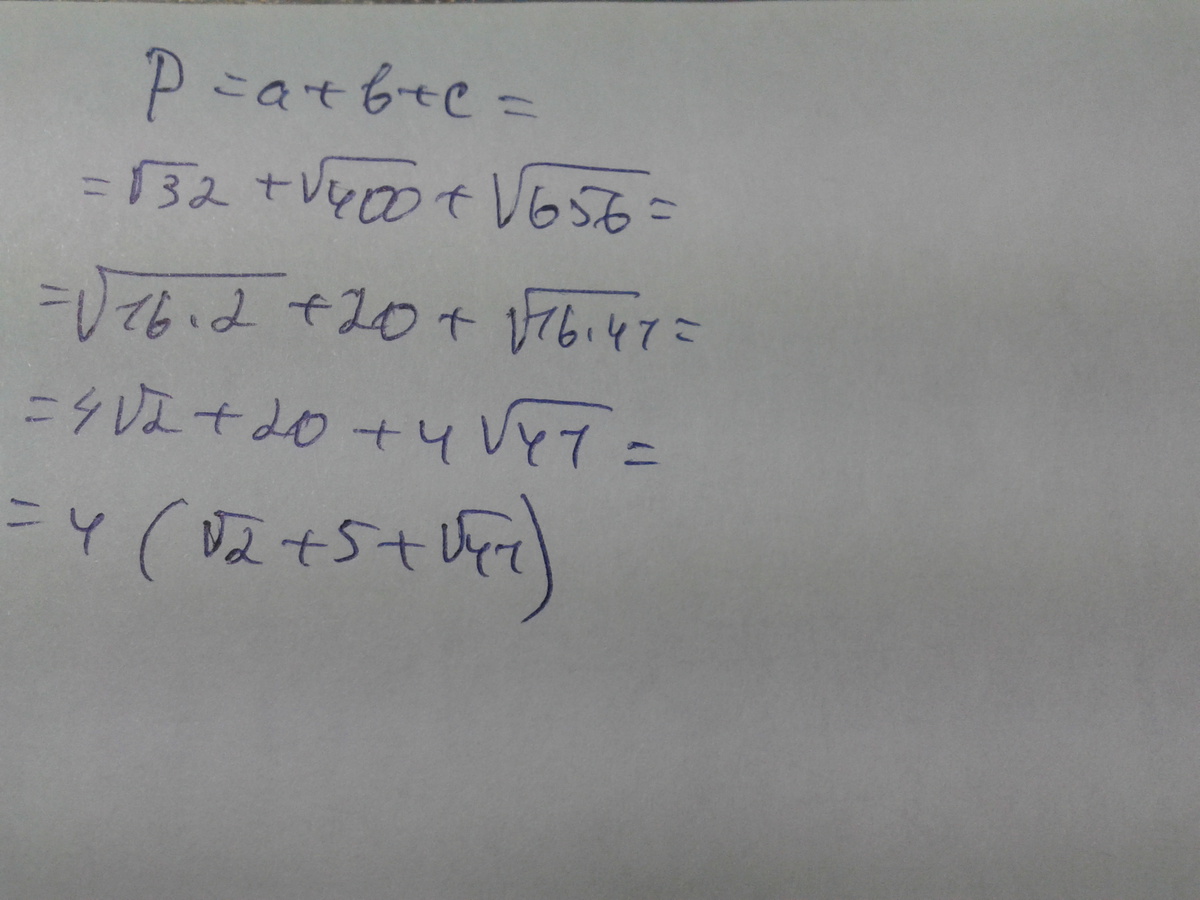 P = a + b + c =
= √32 + √400 + √656 =
= √16.2 + 20 + √16.41 =
= 4√2 + 20 + 4√41 =
= 4 (√2 + 5 + √41)